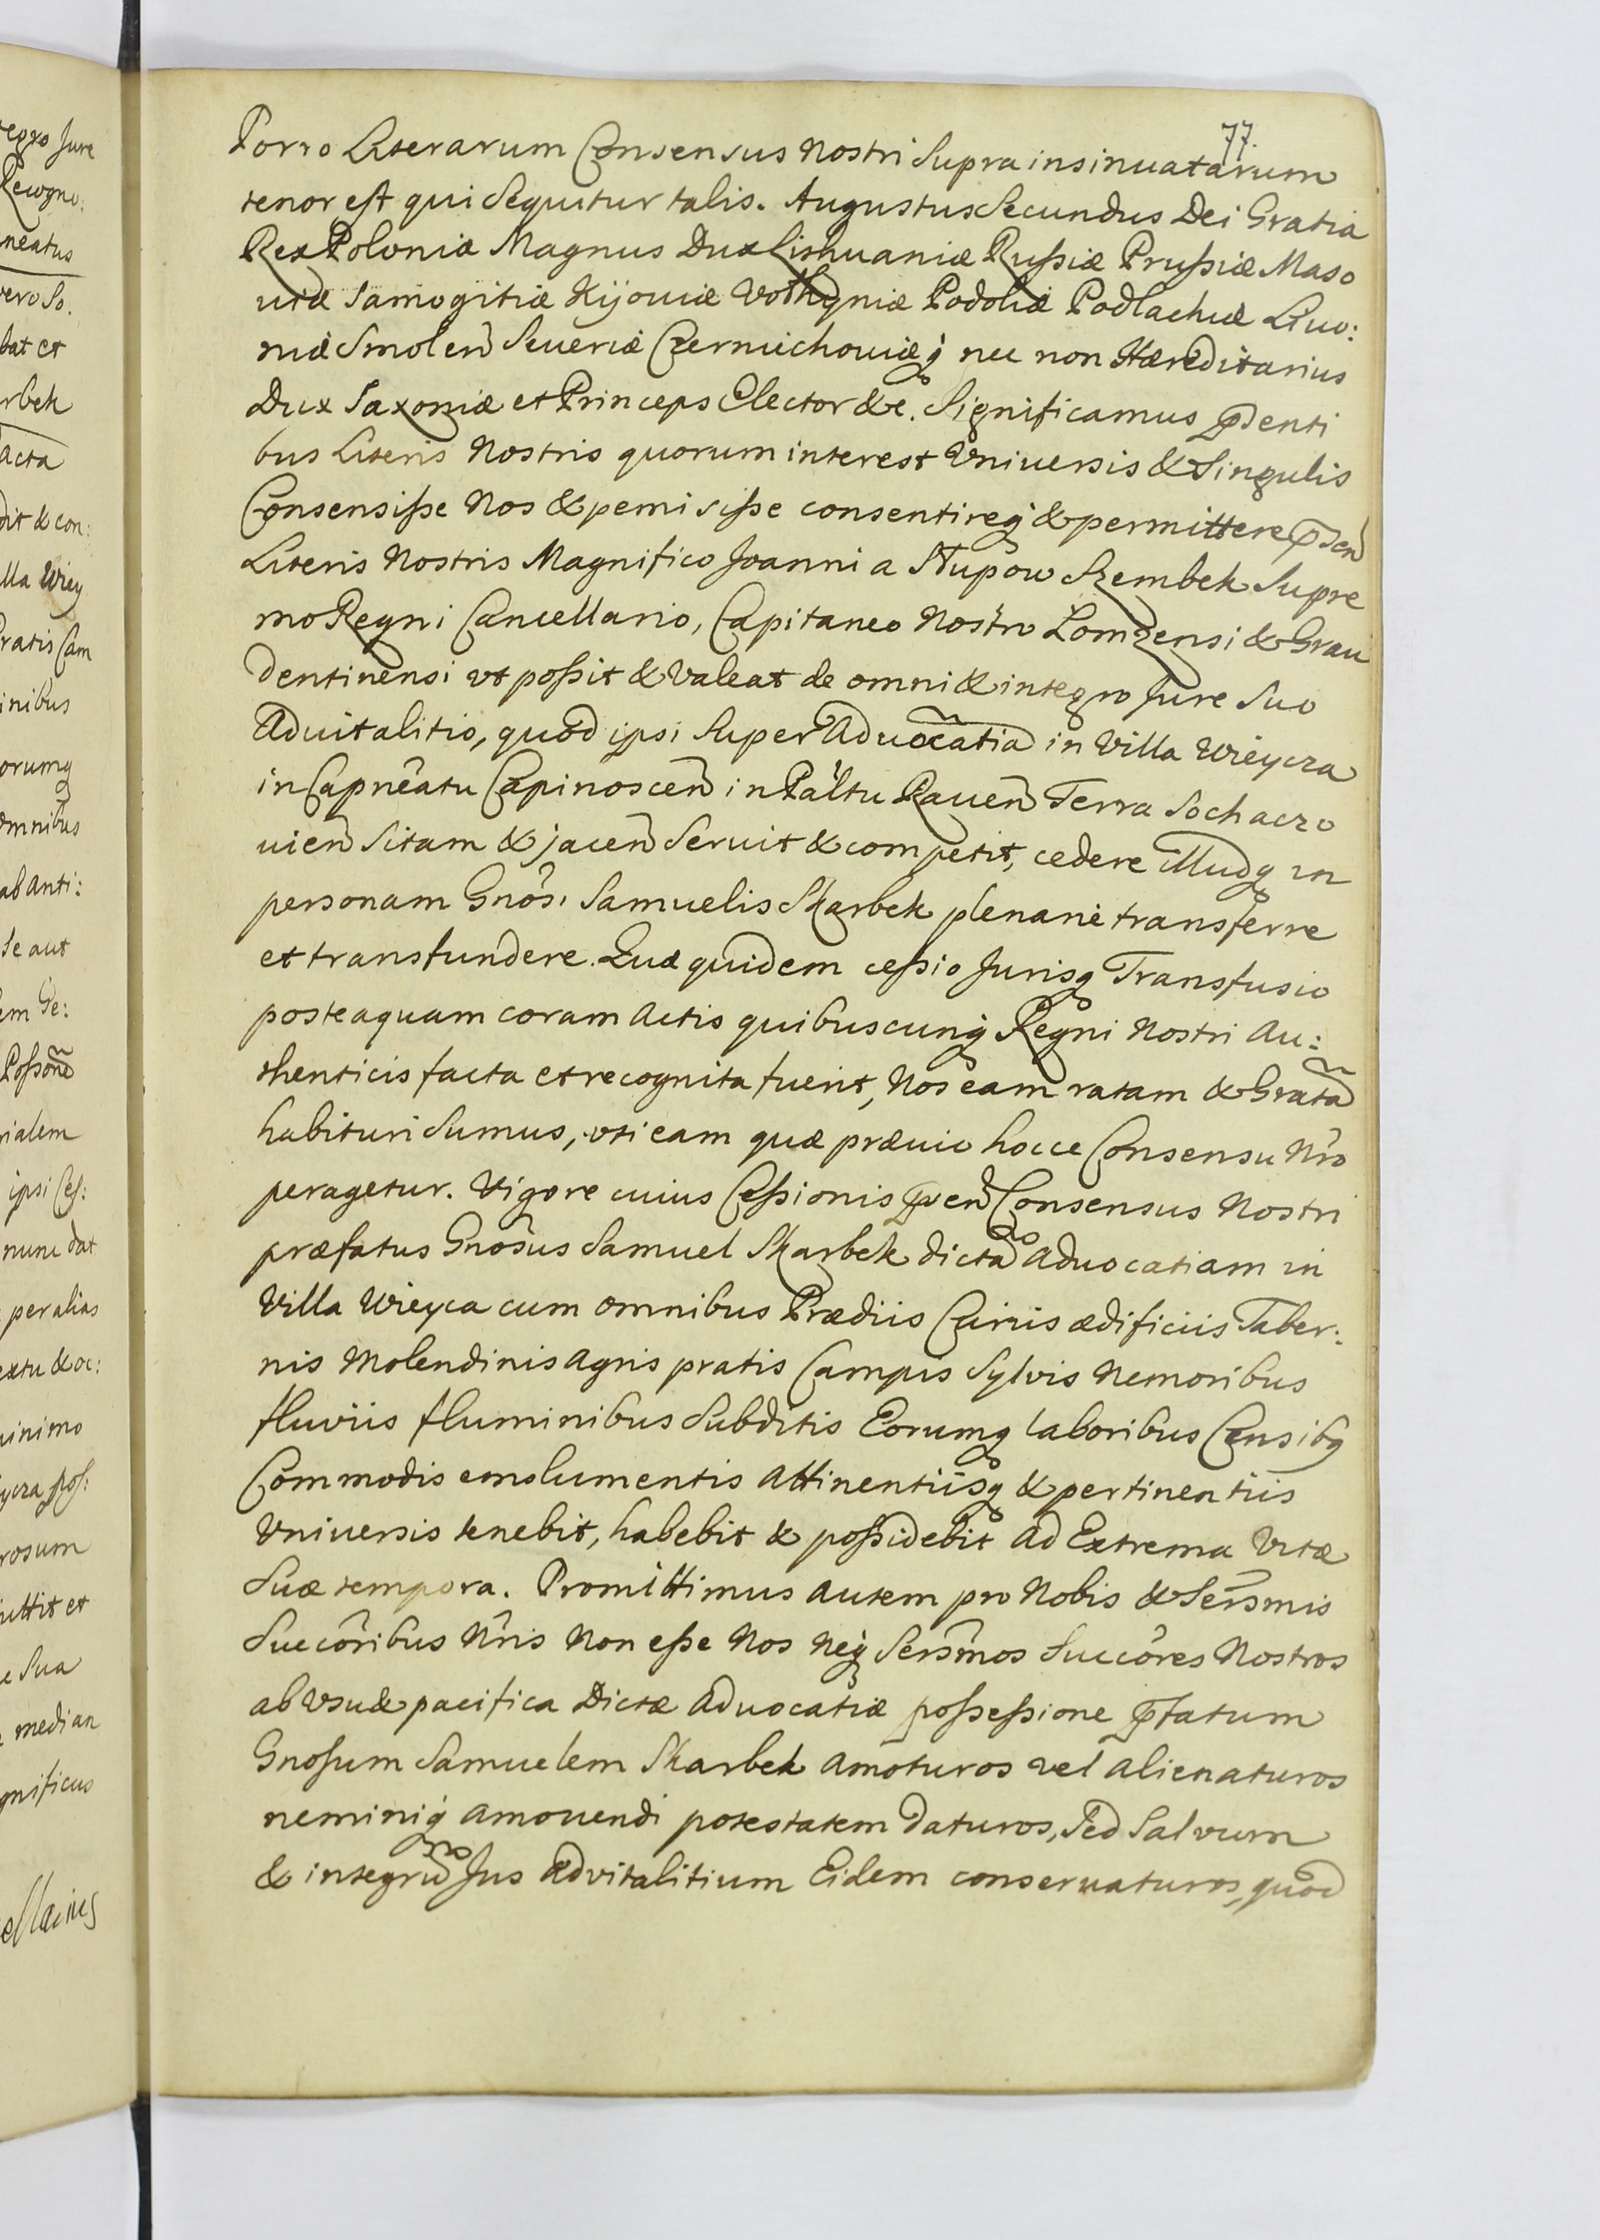 77.
Porro Literarum Consensus Nostri Supra insinuatarum
tenor est qui Sequitur talis. Augustus Secundus Dei Gratia
Rex Poloniæ Magnus Dux Lithuaniæ Rußiæ Prußiæ Maso
uiæ Samogitiæ Kijouiæ Volhyniæ Podoliæ Podlachiæ Liuo:
niæ Smolen̄ Seueriæ Czernichouiæq̃ nec non Hæreditarius
Dux Saxoniæ et Princeps Elector &c. Significamus p̄senti
bus Literis Nostris quorum interest Vniuersis & Singulis
Consensiße Nos & pemisiße consentireq̃ & permittere p̄sen̄
Literis Nostris Magnifico Joanni a Słupow Szembek Supre
mo Regni Cancellario, Capitaneo Nostro Lomzensi & Grau
dentinensi vt poßit & Valeat de omni & integro Jure Suo
Aduitalitio, quod ipsi Super Aduoc̃atia in Villa Wieycza
in Capn̄eatu Capinoscen̄ in Pal̃tu Rauen̄ Terra Sochaczo
uien̄ Sitam & jacen̄ Seruit & competit, cedere illudq in
personam Gnõsi Samuelis Skarbek plenariè transferre
et transfundere. Quæ quidem ceßio Jurisq Transfusio
posteaquam coram Actis quibuscunq̃ Regni Nostri Au:
thenticis facta et recognita fuerit, Nos eam ratam & Gratã
habituri Sumus, vti eam quæ præuio hocce Consensu Nr̃o
peragetur. Vigore cuius Ceßionis p̄sen̄ Consensus Nostri
præfatus Gnõsus Samuel Skarbek dictã Aduocatiam in
Villa Wieyca cum omnibus Prædiis Curiis ædificiis Taber:
nis Molendinis Agris pratis Campis Sylvis Nemoribus
fluviis fluminibus Subditis Eorumq laboribus Censibq
Commodis emolumentis Attinentiisq & pertinentiis
Vniuersis tenebit, habebit & poßidebit Ad Extrema Vitæ
Suæ tempora. Promittimus Autem pro Nobis & Ser̃smis
Succõribus Nr̃is Non eße Nos Neq̃ Ser̃smos Succõres Nostros
ab Vsu & pacifica Dictæ Aduocatiæ poßeßione p̄fatum
Gnosum Samuelem Skarbek Amoturos vel Alienaturos
neminiq̃ Amouendi potestatem Daturos, Sed Salvum
& integrũ Jus Advitalitium Eidem conseruaturos, quod